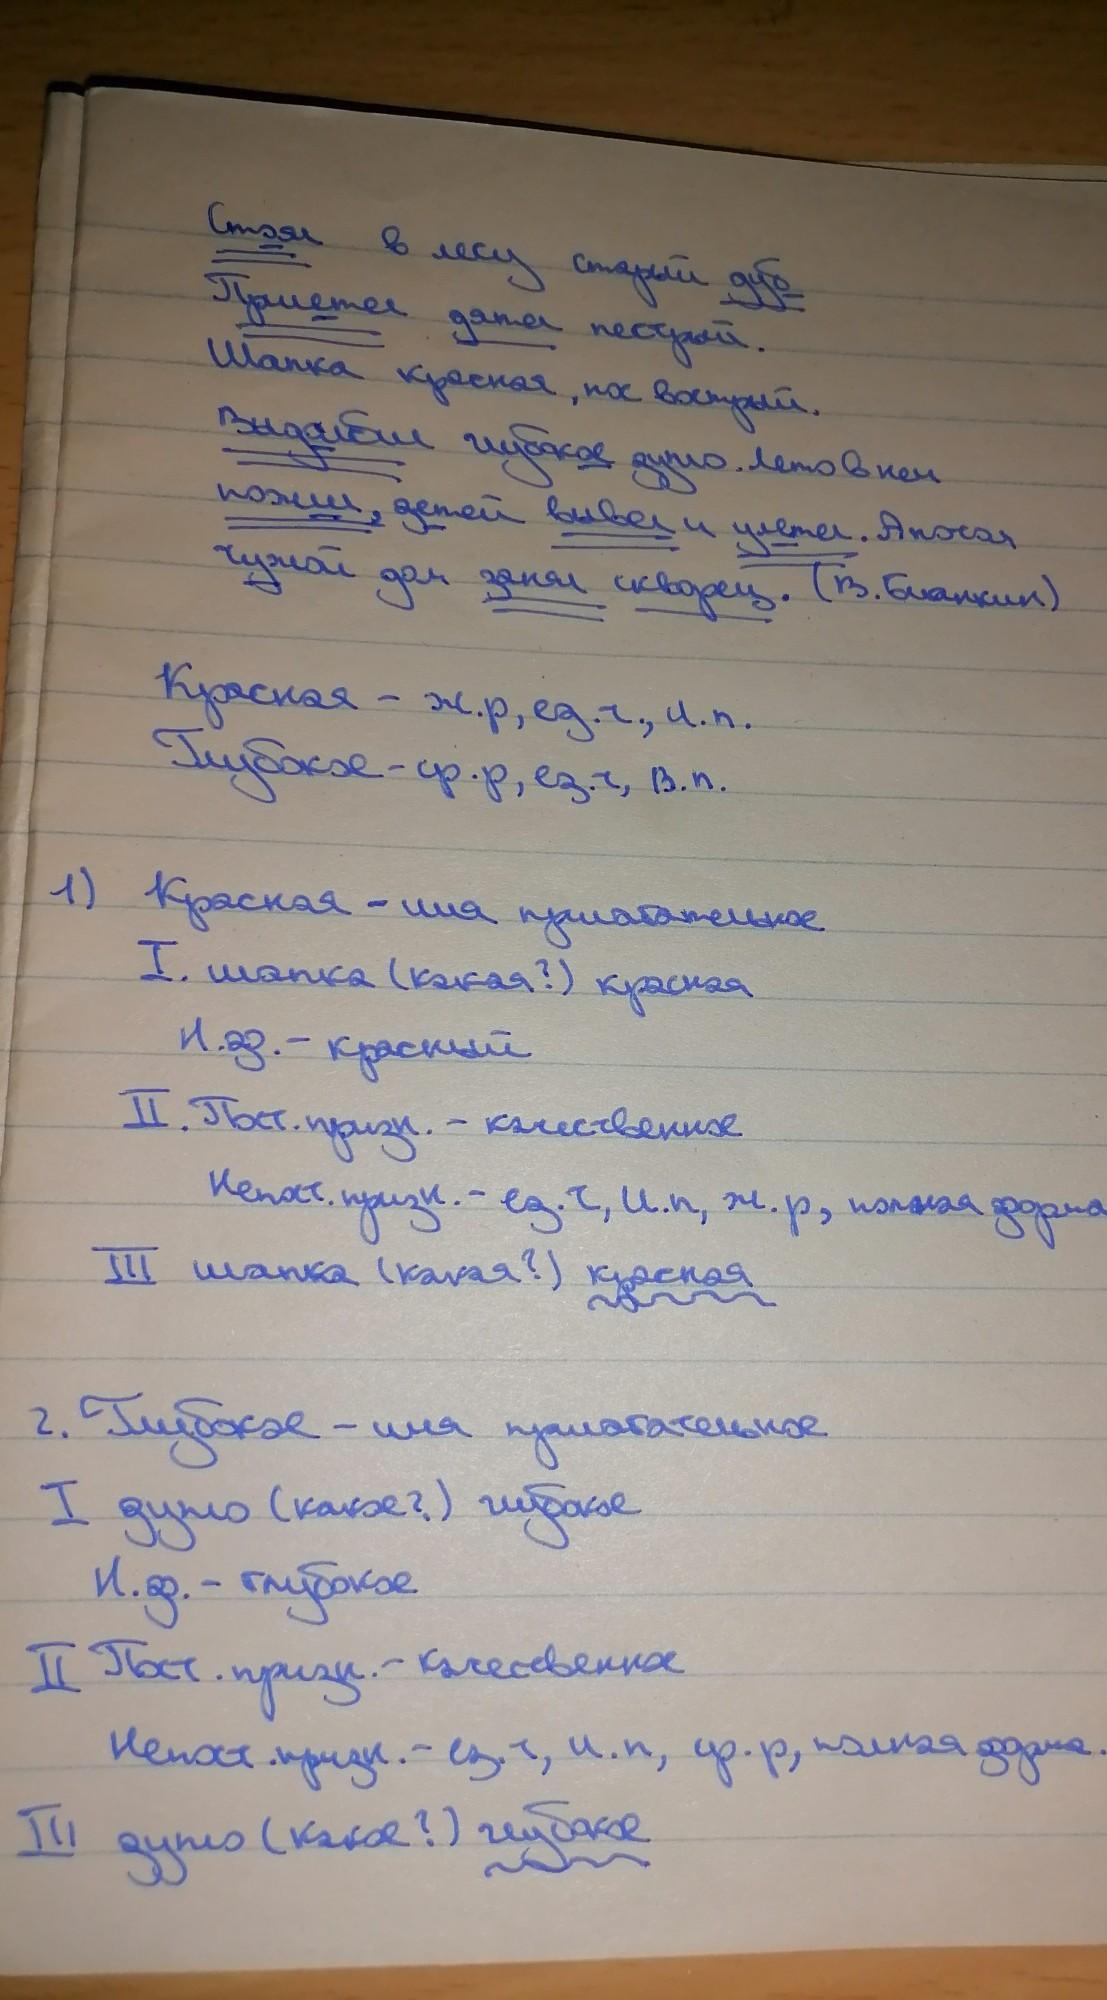 Стоял в лесу старый дуб
Прилетел дятел пестрый.
Шапка красная, нос вострый.
Выдолбил глубокое дупло. Лето в нем
пожил, детей вывел и улетел. А после
чужой дом занял скворец. (В. Бианкин)
Красная – ж.р, ед.ч., И.п.
Глубокое – ср.р, ед.ч, В.п.
1) Красная – имя прилагательное
I. шапка (какая?) красная
Н.ф. – красный
II. Пост. призн. – качественное
Непост. призн. – ед.ч, И.п, ж.р, полная форма
III шапка (какая?) красная
2. Глубокое – имя прилагательное
I дупло (какое?) глубокое
Н.ф. – глубокое
II Пост. призн. – качественное
Непост. призн. – ед.ч, И.п, ср.р, полная форма.
III дупло (какое?) глубокое